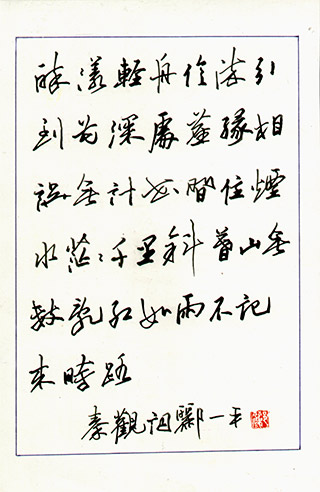 醉漾輕舟信流引
到花深處塵緣相
誤無計花間住煙
水茫〻千里斜暮山無
數亂紅如雨不記
来時路
秦觀詞酈一平